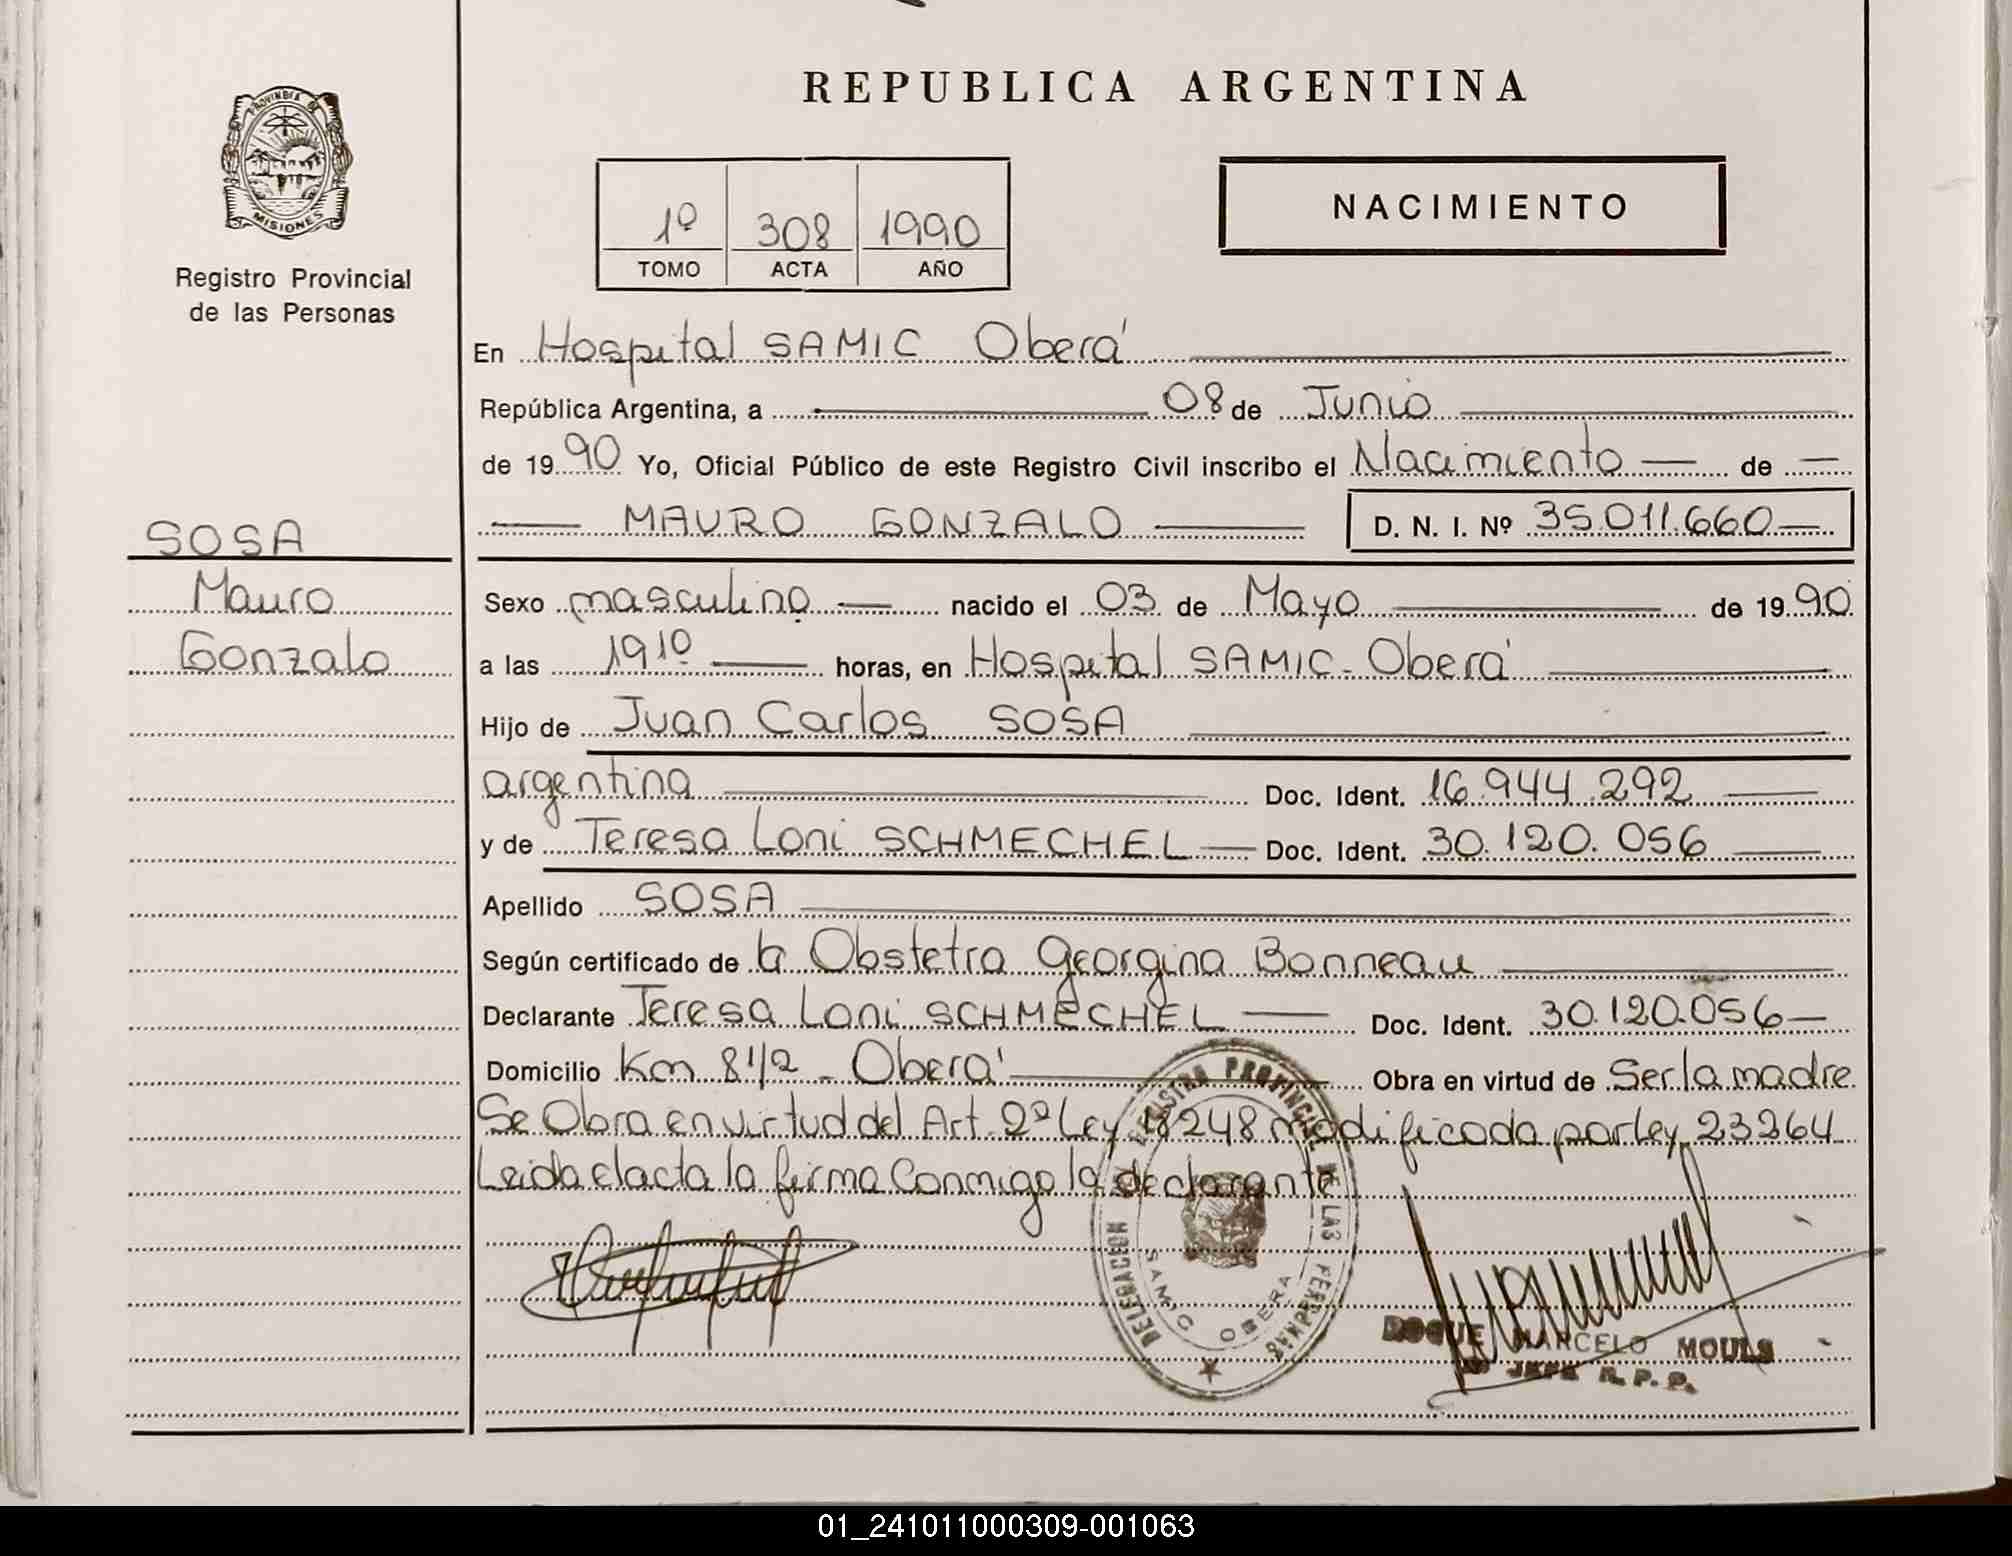 REPUBLICA ARGENTINA
PROVINCIA DE
MISIONES
Registro Provincial
de las Personas
1º 308 1990
TOMO ACTA AÑO
NACIMIENTO
En Hospital SAMIC Oberá
República Argentina, a 08 de Junio
de 1990 Yo, Oficial Público de este Registro Civil inscribo el Nacimiento — de —
MAURO GONZALO D. N. I. Nº 35.011.660
SOSA
Mauro
Gonzalo
Sexo masculino nacido el 03 de Mayo de 1990
a las 19 10 horas, en Hospital SAMIC - Oberá
Hijo de Juan Carlos SOSA
argentina Doc. Ident. 16.944.292
y de Teresa Loni SCHMECHEL Doc. Ident. 30.120.056
Apellido SOSA
Según certificado de la Obstetra Georgina Bonneau
Declarante Teresa Loni SCHMECHEL Doc. Ident. 30.120.056
Domicilio Km 8 1/2 - Oberá Obra en virtud de Ser la madre
Se Obra en virtud del Art. 2º Ley 18248 modificada por Ley 23264
Leida el acta la firma Conmigo la declarante
DELEGACION REGISTRO PROVINCIAL DE LAS PERSONAS
SAMIC OBERA
ROQUE MARCELO MOULS
JEFE R.P.P.
01_241011000309-001063